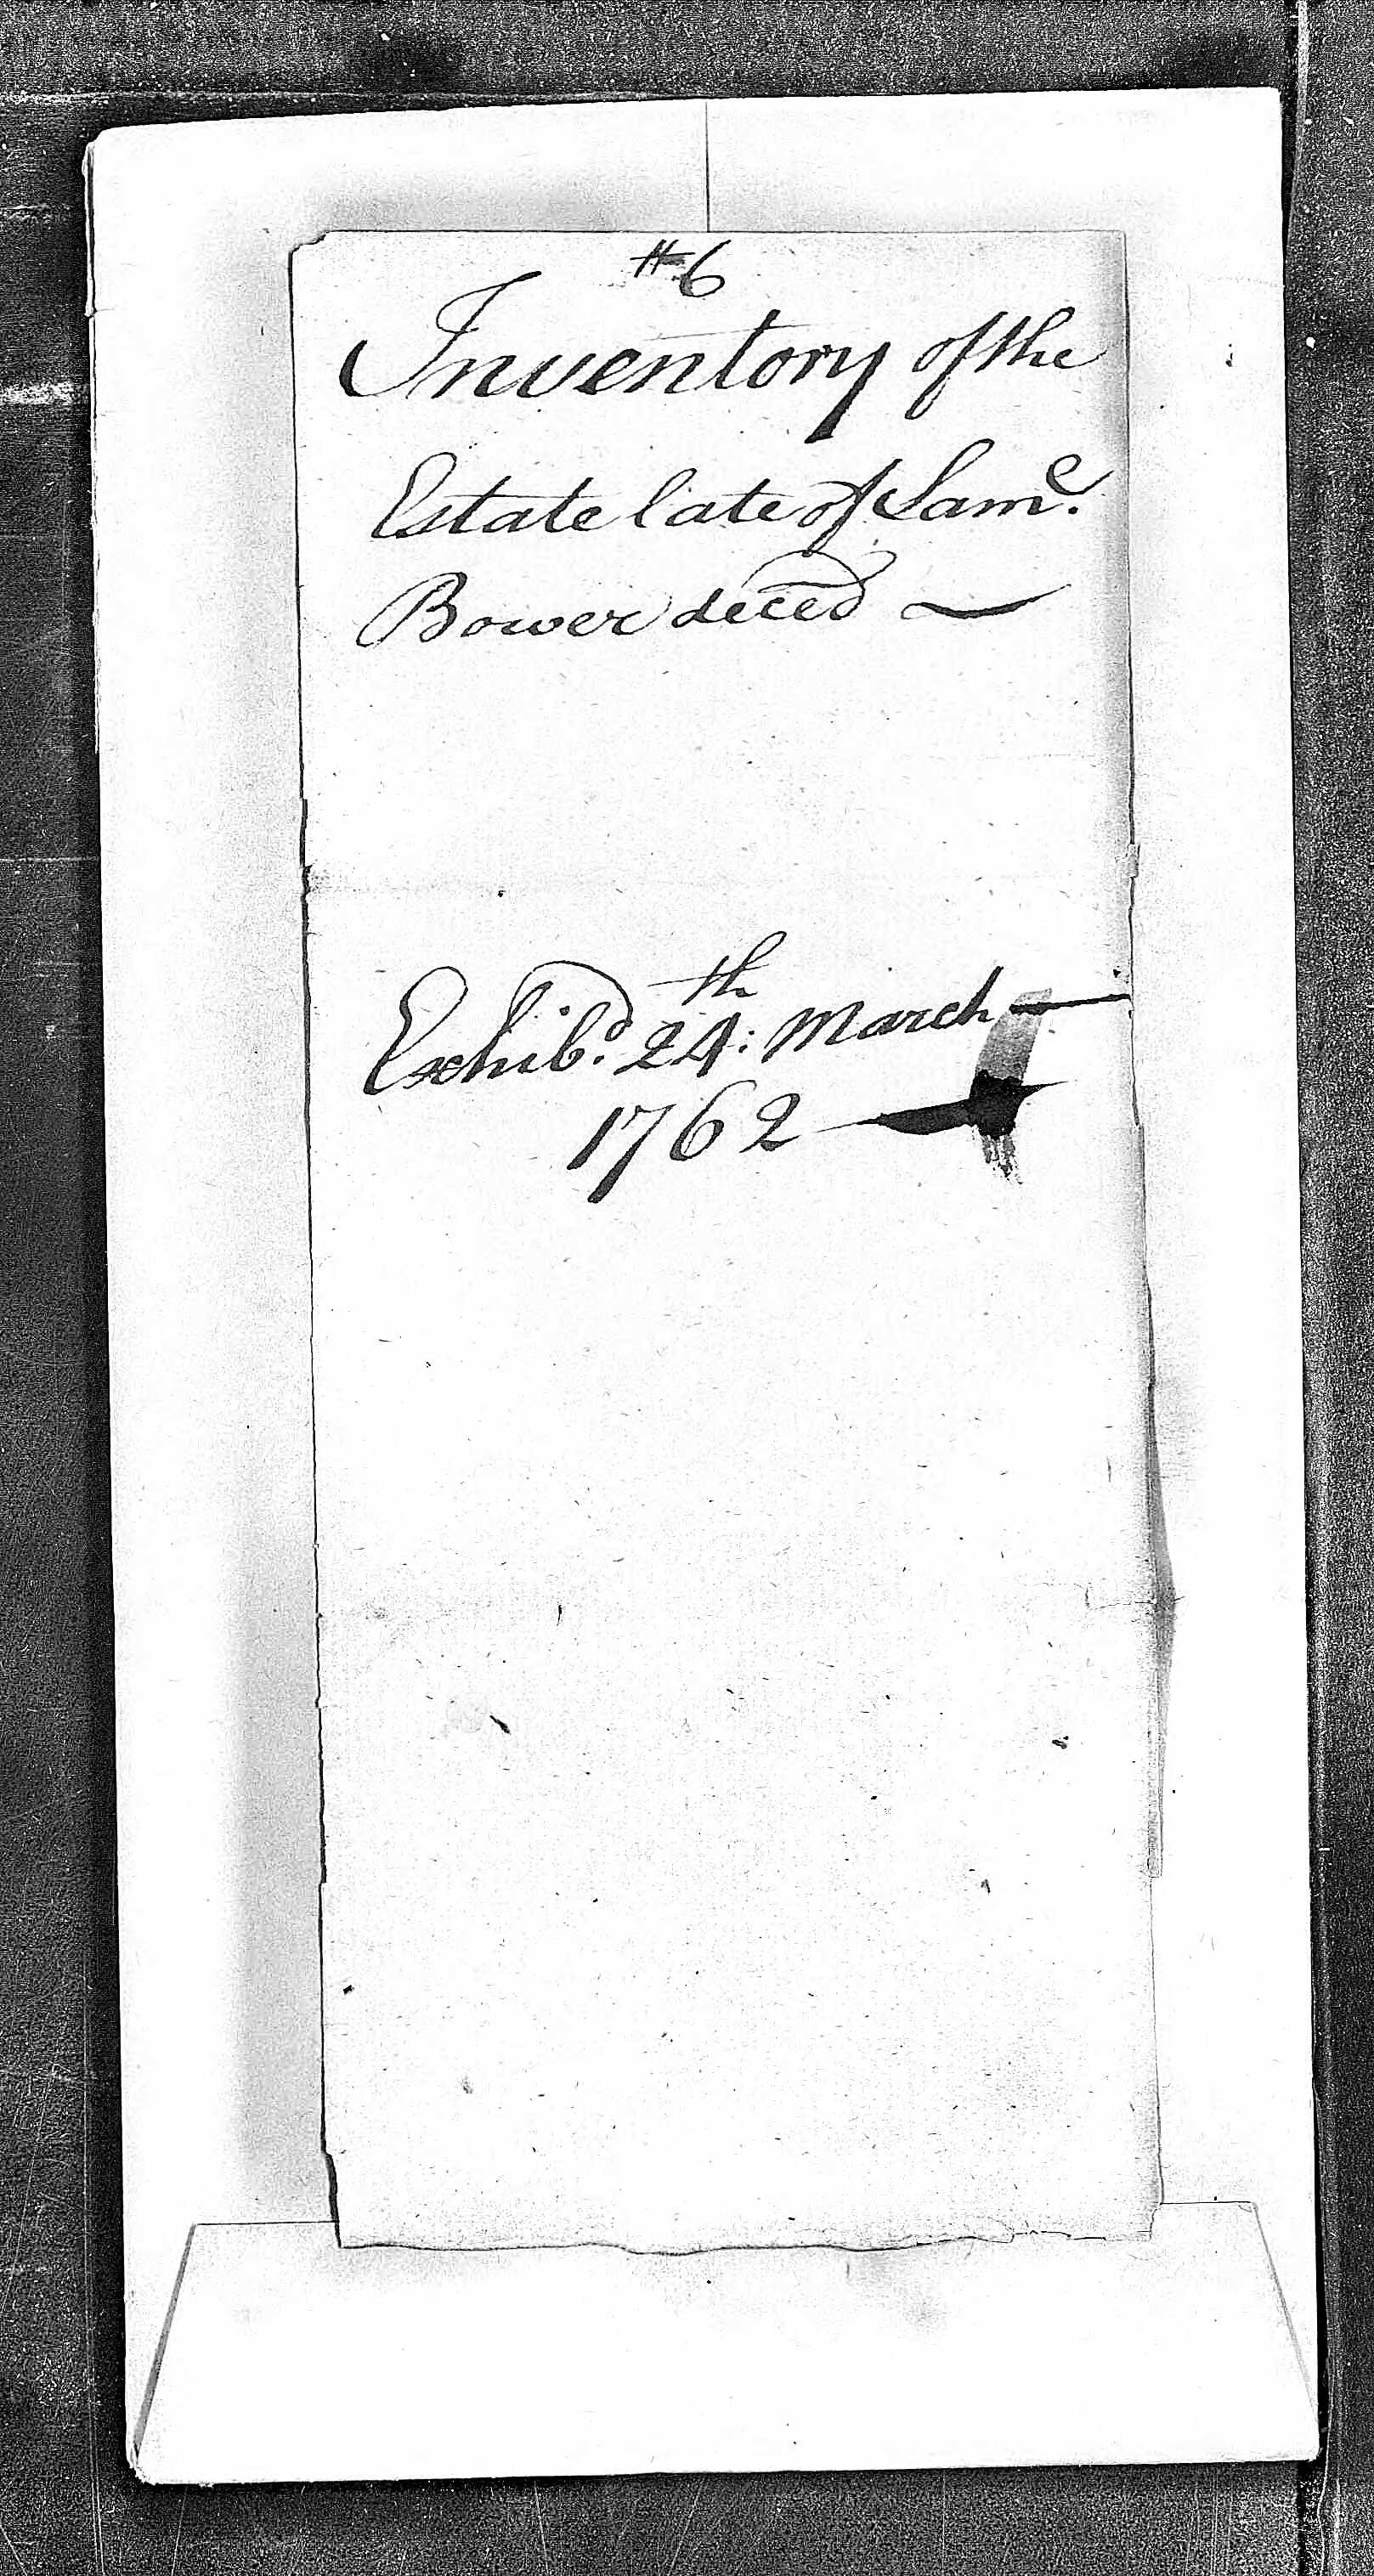 #6
Inventory of the
Estate late of Saml.
Bower deced
Exhibd. 24th: March
1762